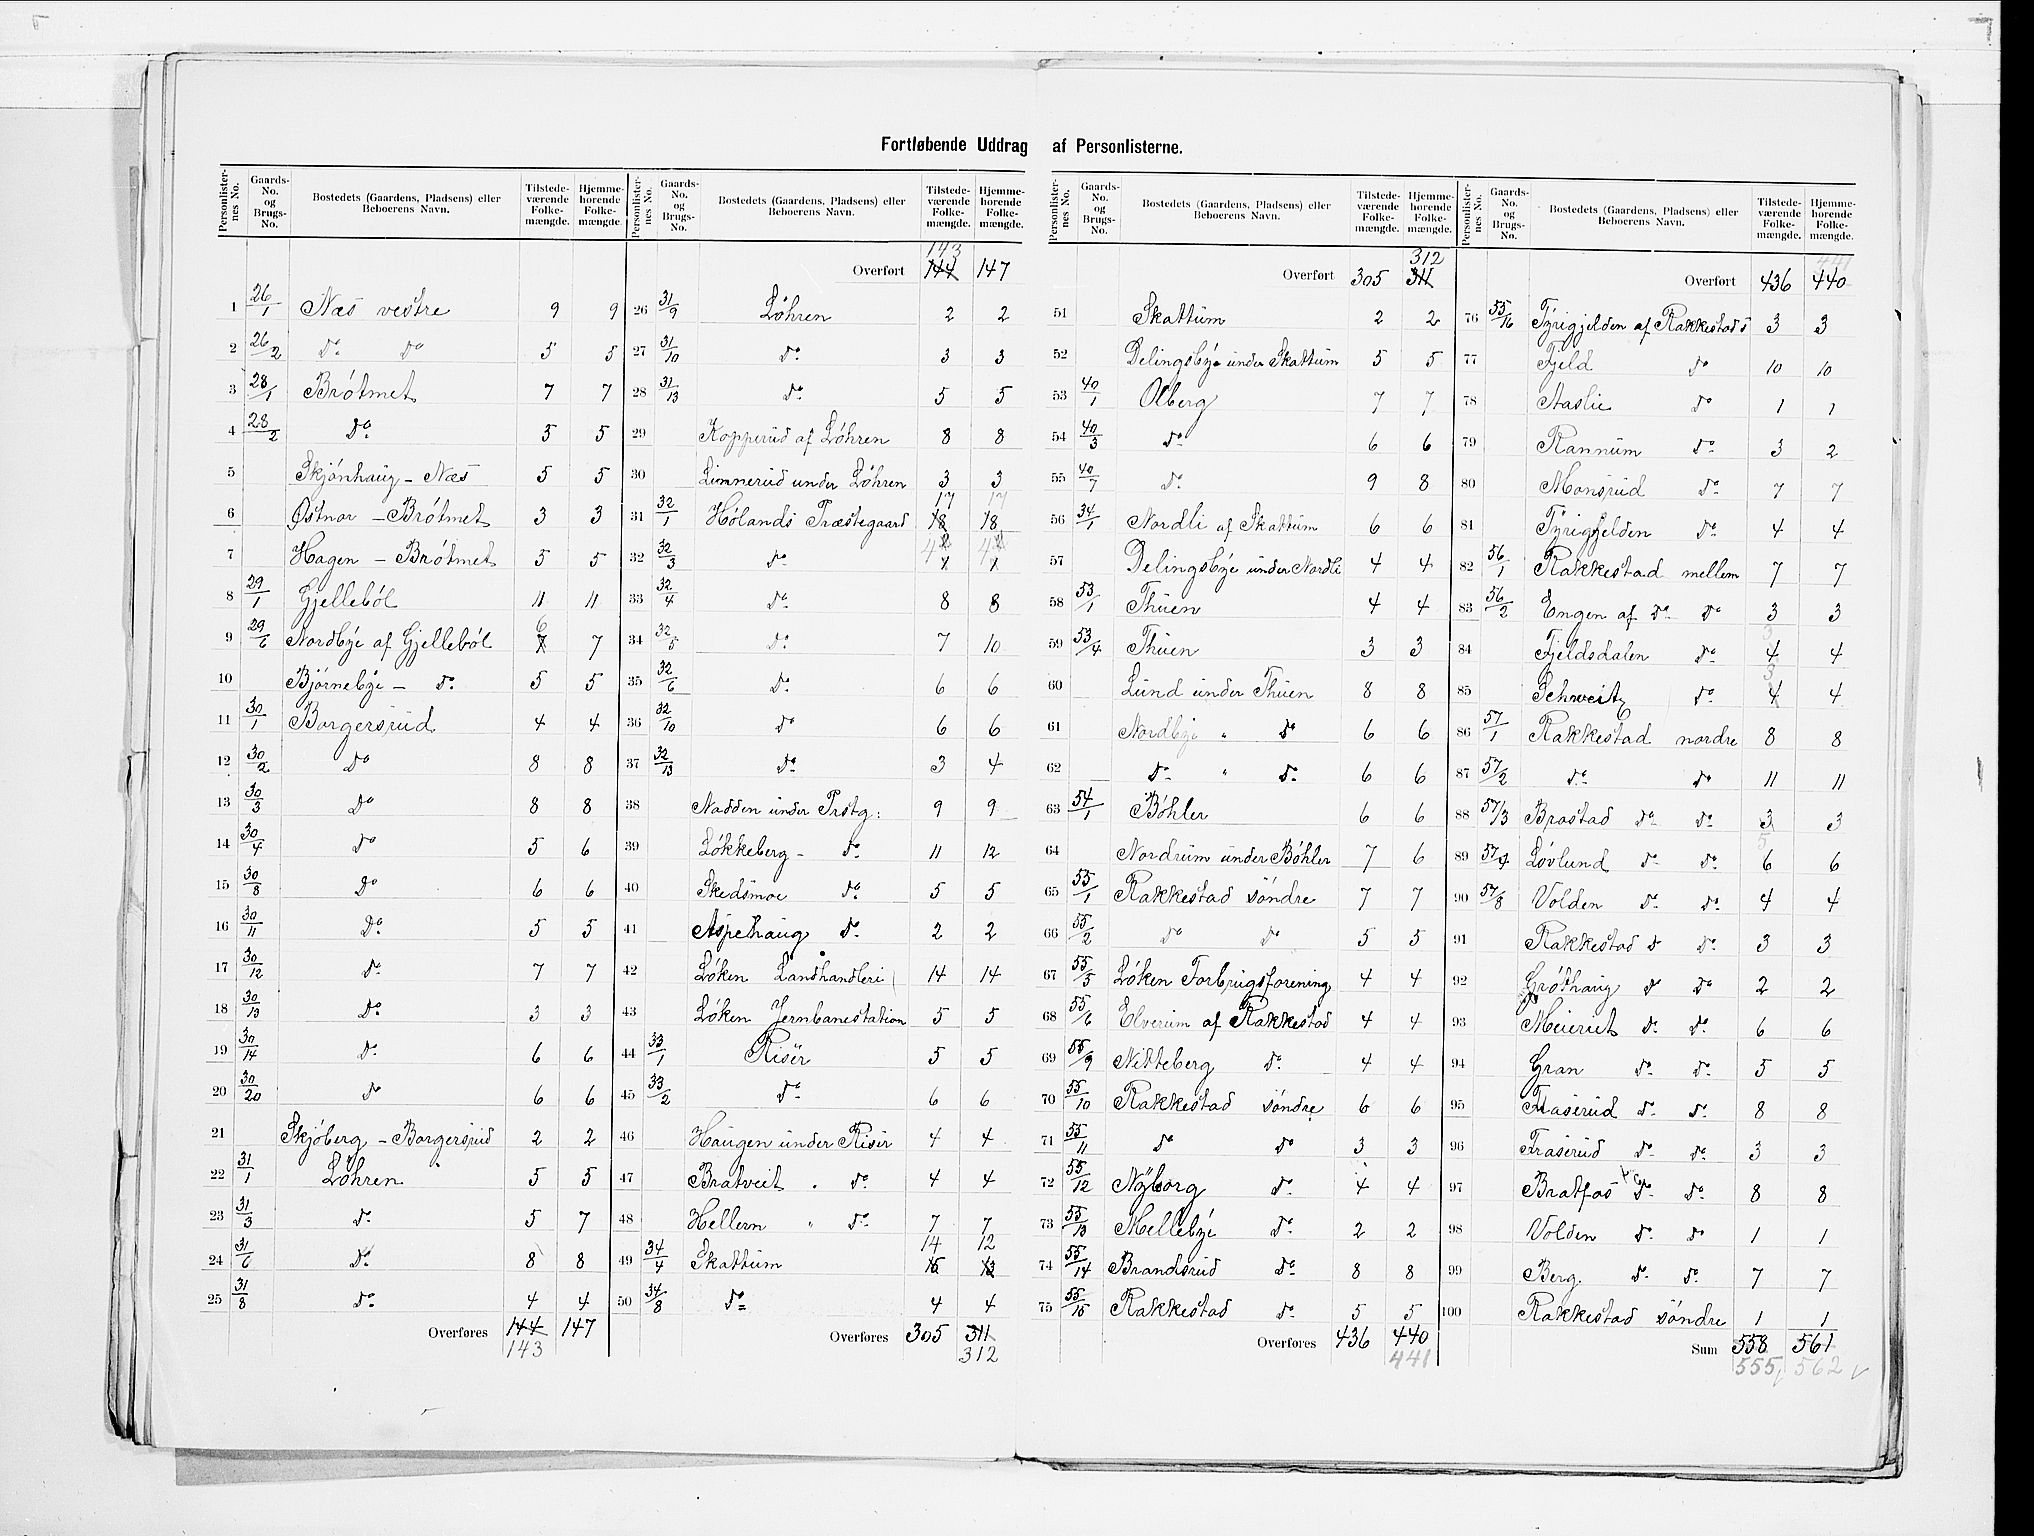 Fortløbende Uddrag af Personlisterne.
Personlisternes No. Gaards-No. og Brugs-No. Bostedets (Gaardens, Pladsens) eller Beboerens Navn. Tilstedeværende Folkemængde. Hjemmehørende Folkemængde.
1 26/1 Næs vestre 9 9
2 26/2 Do Do 5 5
3 28/1 Brötmet 7 7
4 28/2 Do 5 5
5 Skjönhaug - Næs 5 5
6 Østnor - Brötmet 3 3
7 Hagen - Brötmet 5 5
8 29/1 Gjelleböl 11 11
9 29/6 Nordbye af Gjelleböl 7 6 7
10 Björnebye - Do 5 5
11 30/1 Borgersrud 4 4
12 30/2 Do 8 8
13 30/3 Do 8 8
14 30/4 Do 5 6
15 30/8 Do 6 6
16 30/11 Do 5 5
17 30/12 Do 7 7
18 30/13 Do 3 3
19 30/14 Do 6 6
20 30/20 Do 6 6
21 Skjöberg - Borgersrud 2 2
22 31/1 Löhren 5 5
23 31/3 Do 5 7
24 31/6 Do 8 8
25 31/8 Do 4 4
Overføres 144 147
143
Personlisternes No. Gaards-No. og Brugs-No. Bostedets (Gaardens, Pladsens) eller Beboerens Navn. Tilstedeværende Folkemængde. Hjemmehørende Folkemængde.
143
Overført 144 147
26 31/9 Löhren 2 2
27 31/10 Do 3 3
28 31/13 Do 5 5
29 Kopperud af Löhren 8 8
30 Limnerud under Löhren 3 3
17 17
31 32/1 Hölands Præstegaard 18 18
32 32/3 Do
33 32/4 Do 8 8
34 32/5 Do 7 10
35 32/6 Do 6 6
36 32/10 Do 6 6
37 32/13 Do 3 4
38 Nadden under Prstg: 9 9
39 Lökkeberg - Do 11 12
40 Skedsmoe Do 5 5
41 Aspehaug Do 2 2
42 Löken Landhandleri 14 14
43 Löken Jernbanestation 5 5
44 33/1 Risër 5 5
45 33/2 Do 6 6
46 Haugen under Risër 4 4
47 Bratveit Do 4 4
48 Hellern " Do 7 7
14 12
49 34/4 Skattum 15 13
50 34/8 Do 4 4
Overføres 305 311
312
Personlisternes No. Gaards-No. og Brugs-No. Bostedets (Gaardens, Pladsens) eller Beboerens Navn. Tilstedeværende Folkemængde. Hjemmehørende Folkemængde.
312
Overført 305 311
51 Skattum 2 2
52 Delingsbye under Skattum 5 5
53 40/1 Olberg 7 7
54 40/3 Do 6 6
55 40/7 Do 9 8
56 34/1 Nordli af Skattum 6 6
57 Delingsbye under Nordli 4 4
58 53/1 Thuen 4 4
59 53/4 Thuen 3 3
60 Lund under Thuen 8 8
61 Nordbye " Do 6 6
62 Do " Do 6 6
63 54/1 Böhler 6 6
64 Nordrum under Böhler 7 6
65 55/1 Rakkestad söndre 7 7
66 55/2 Do Do 5 5
67 55/5 Löken Forbrugsforening 4 4
68 55/6 Elverum af Rakkestad 4 4
69 55/9 Nitteberg Do 4 4
70 55/10 Rakkestad söndre 6 6
71 55/11 Do Do 3 3
72 55/12 Nyborg Do 4 4
73 55/13 Mellebye Do 2 2
74 55/14 Brandsrud Do 8 8
75 55/15 Rakkestad Do 5 5
Overføres 436 440
441
Personlisternes No. Gaards-No. og Brugs-No. Bostedets (Gaardens, Pladsens) eller Beboerens Navn. Tilstedeværende Folkemængde. Hjemmehørende Folkemængde.
441
Overført 436 440
76 55/16 Tyrigjelden af Rakkestad s 3 3
77 Fjeld Do 10 10
78 Aaslie Do 1 1
79 Rannum Do 3 2
80 Monsrud Do 7 7
81 Tyrigjelden Do 4 4
82 56/1 Rakkestad mellem 7 7
83 56/2 Engen af Do Do 3 3
84 Fjeldsdalen Do 4 3 4
85 Schweitz Do 4 3 4
86 57/1 Rakkestad nordre 8 8
87 57/2 Do Do 11 11
88 57/3 Brostad Do Do 3 3
89 57/4 Lövlund Do Do 6 5 6
90 57/8 Volden Do Do 4 4
91 Rakkestad Do Do 3 3
92 Gröthaug Do Do 2 2
93 Meieriet Do Do 6 6
94 Gran Do Do 5 5
95 Fraserud Do Do 8 8
96 Fraserud Do Do 3 3
97 Bratfos Do Do 8 8
98 Volden Do Do 1 1
99 Berg Do Do 7 7
100 Rakkestad söndre 1 1
Sum 558 561
555 562